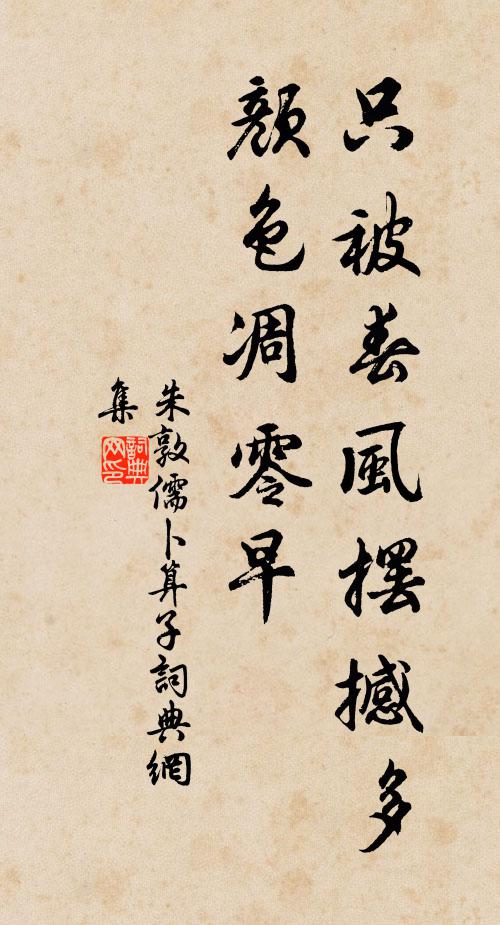 只被春風擺撼多
顏色凋零早
朱敦儒卜算子詞典網
集
詞典
网印